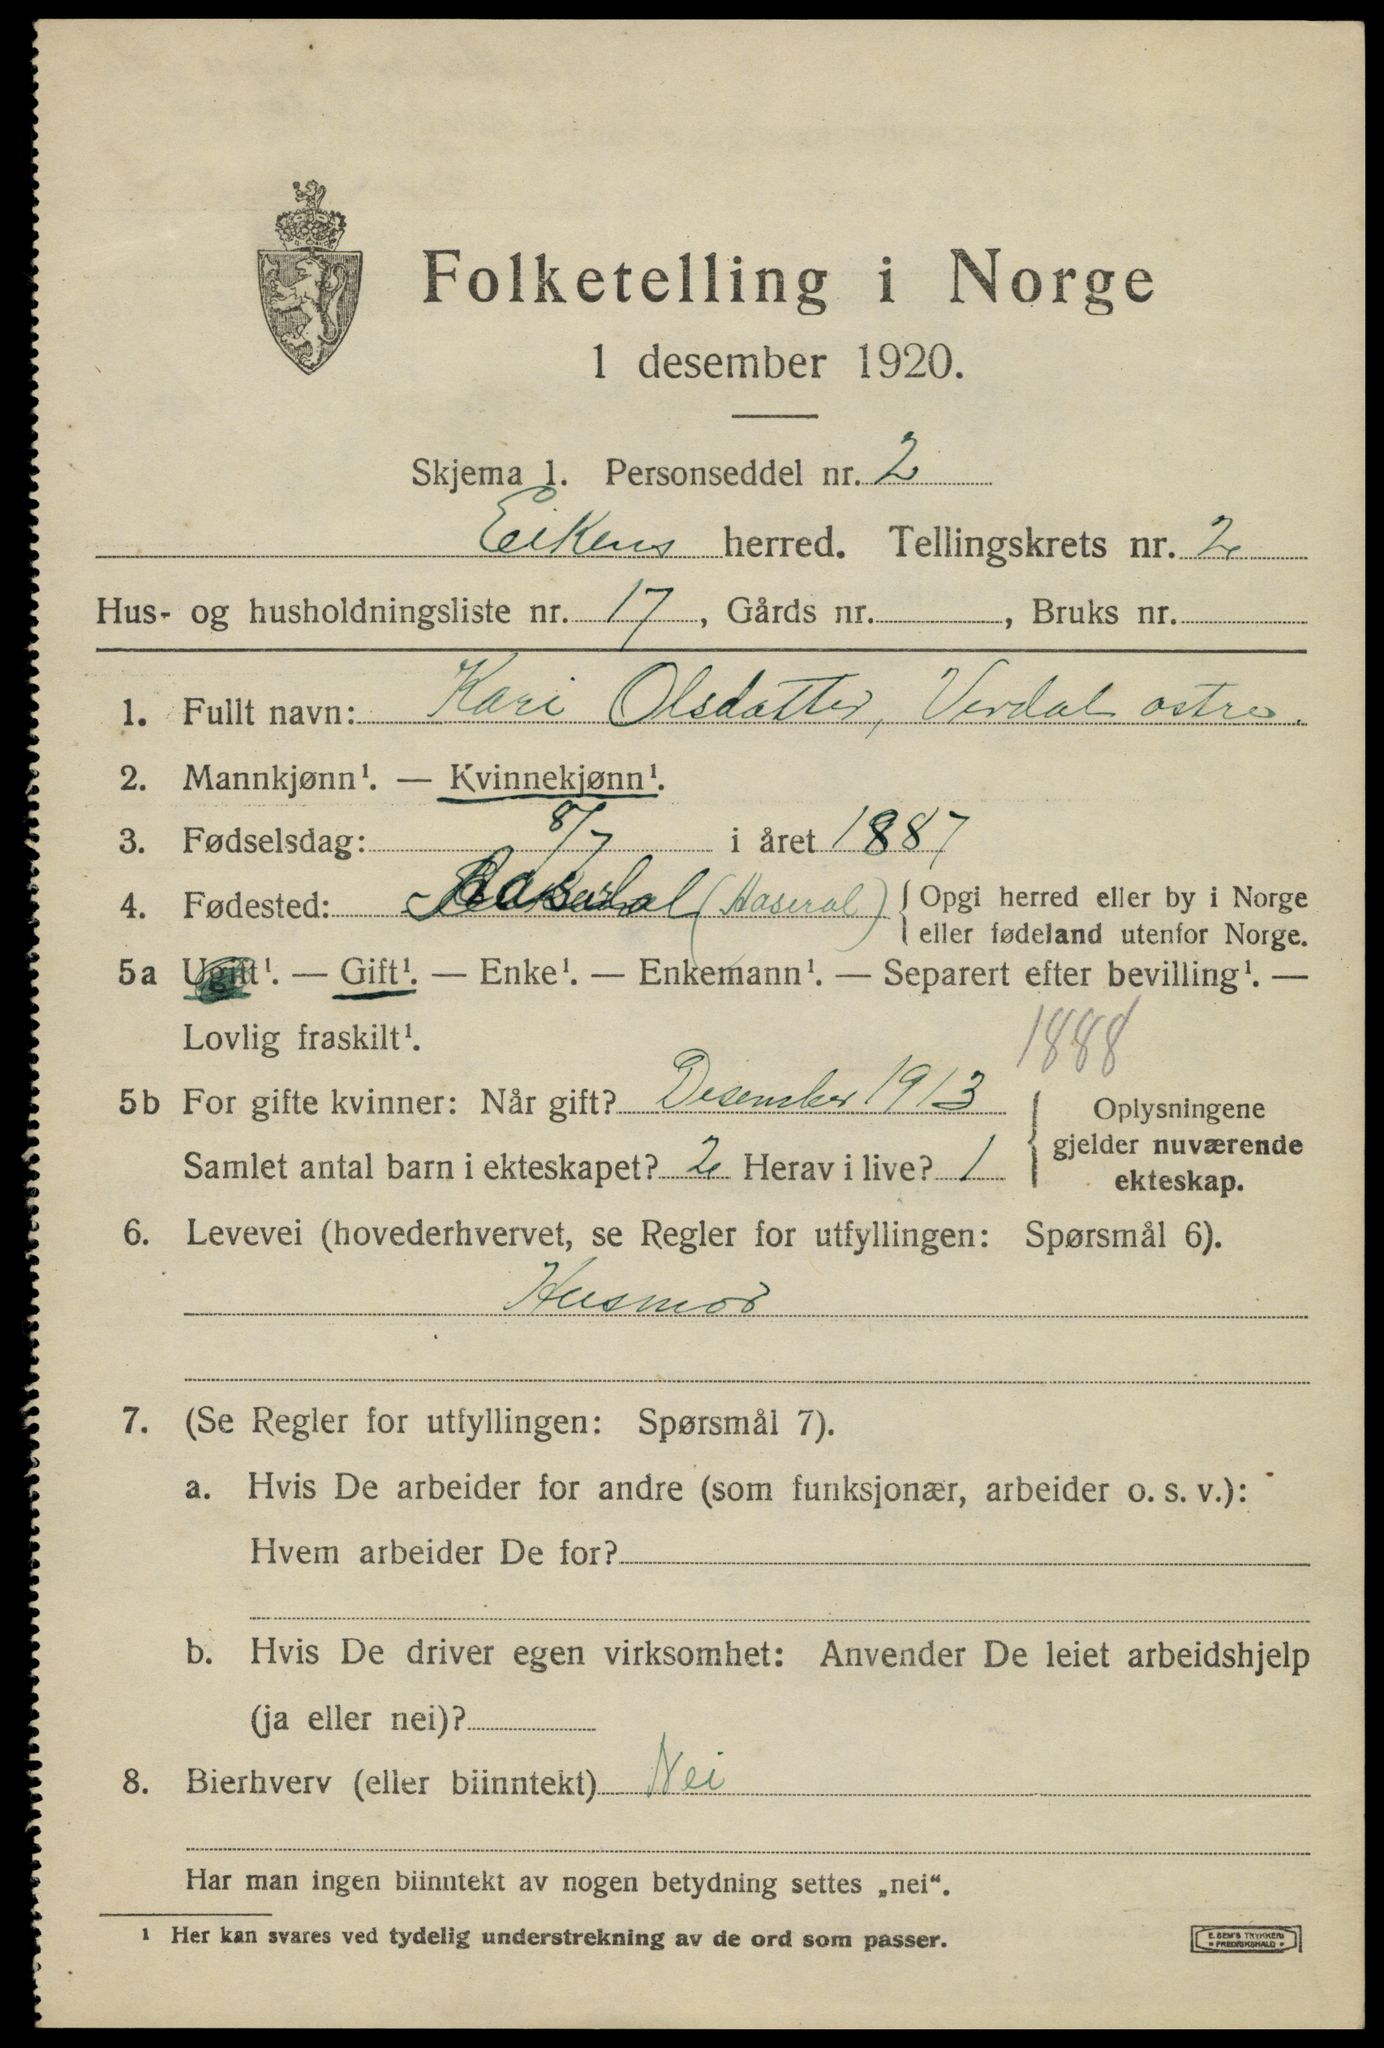 Folketelling i Norge
1 desember 1920.
Skjema 1. Personseddel nr. 2
Eikens herred. Tellingskrets nr. 2
Hus- og husholdningsliste nr. 17, Gårds nr. , Bruks nr.
1. Fullt navn: Kari Olsdatter, Verdal østre.
2. Mannkjønn¹. — Kvinnekjønn¹.
3. Fødselsdag: 8/7 i året 1887
4. Fødested: (Aaseral) { Opgi herred eller by i Norge
eller fødeland utenfor Norge.
5a Ugift¹. — Gift¹. — Enke¹. — Enkemann¹. — Separert efter bevilling¹. —
Lovlig fraskilt¹.
1888
5b For gifte kvinner: Når gift? Desember 1913
Samlet antal barn i ekteskapet? 2 Herav i live? 1
{ Oplysningene
gjelder nuværende
ekteskap.
6. Levevei (hovederhvervet, se Regler for utfyllingen: Spørsmål 6).
Husmor
7. (Se Regler for utfyllingen: Spørsmål 7).
a. Hvis De arbeider for andre (som funksjonær, arbeider o. s. v.):
Hvem arbeider De for?
b. Hvis De driver egen virksomhet: Anvender De leiet arbeidshjelp
(ja eller nei)?
8. Bierhverv (eller biinntekt) Nei
Har man ingen biinntekt av nogen betydning settes „nei“.
¹ Her kan svares ved tydelig understrekning av de ord som passer.
E. SEM'S TRYKKERI
• FREDRIKSHALD •